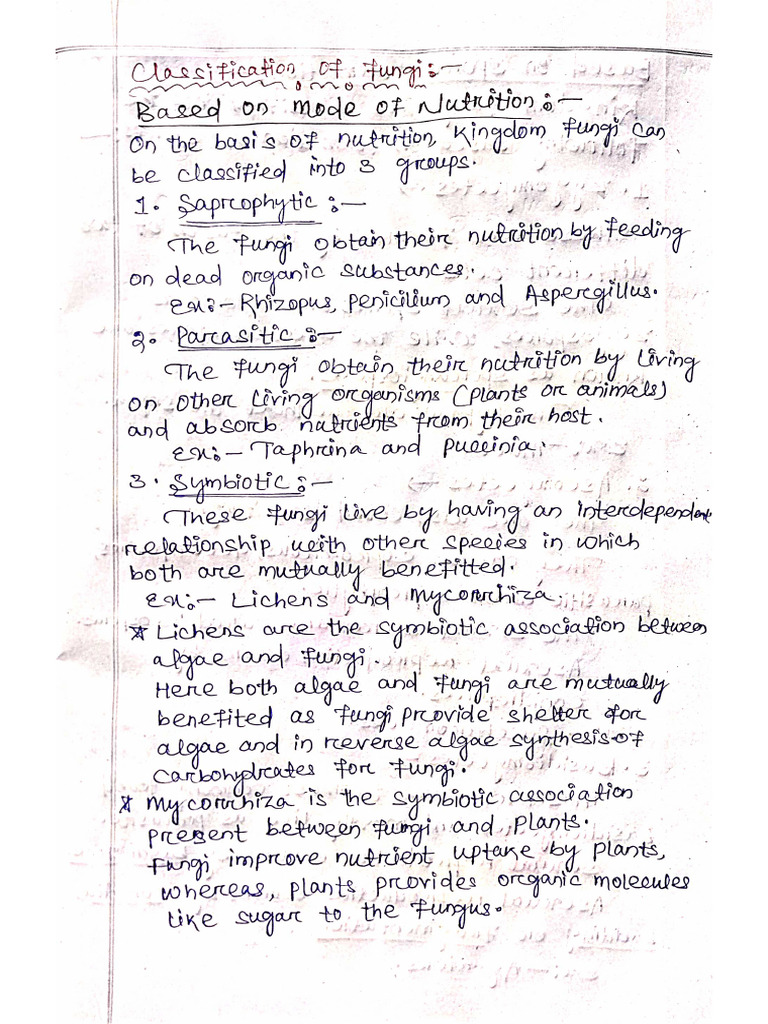 Classification of fungi:-
Based on mode of Nutrition:-
On the basis of nutrition, Kingdom fungi can
be classified into 3 groups.
1. Saprophytic :-
The fungi obtain their nutrition by feeding
on dead organic substances.
Ex:- Rhizopus, Penicilium and Aspergillus.
2. Parasitic :-
The fungi obtain their nutrition by living
on other living organisms (plants or animals)
and absorb nutrients from their host.
Ex:- Taphrina and Puccinia.
3. Symbiotic :-
These fungi live by having an interdependent
relationship with other species in which
both are mutually benefitted.
Ex:- Lichens and Mycorrhiza
* Lichens are the symbiotic association between
algae and fungi.
Here both algae and fungi are mutually
benefited as fungi provide shelter for
algae and in reverse algae synthesis of
carbohydrates for fungi.
* Mycorrhiza is the symbiotic association
present between fungi and plants.
fungi improve nutrient uptake by plants,
whereas, plants provides organic molecules
like sugar to the fungus.